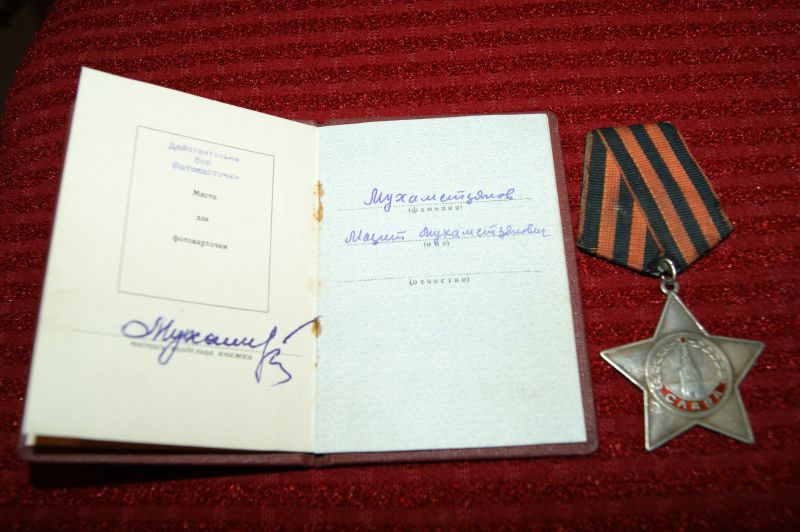 Действительна
без
Фотокарточки
Место
для
фотокарточки
подпись владельца книжки
Мухаметзянов
(фамилия)
Мухаметзянович
(имя)
(отчество)
СЛАВА